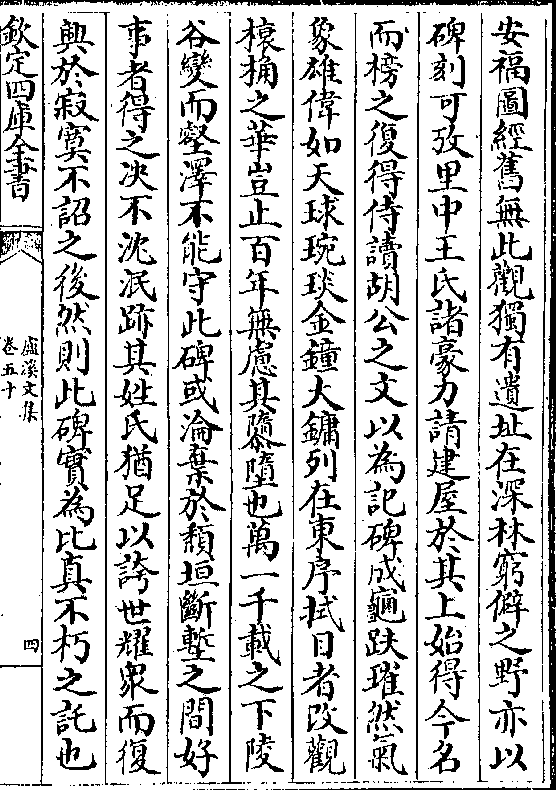 安福圖經舊無此觀獨有遺址在深林窮僻之野亦以
碑刻可攷里中王氏諸豪力請建屋於其上始得今名
而榜之復得侍讀胡公之文以為記碑成龜趺璀然氣
象雄偉如天球琬琰金鐘大鏞列在東序拭目者改觀
榱桷之華豈止百年無慮其隳墮也萬一千載之下陵
谷變而壑澤不能守此碑或淪棄於頽垣斷塹之間好
事者得之决不沈泯跡其姓氏猶足以誇世耀衆而復
興於寂寞不詔之後然則此碑實為比真不朽之託也
欽定四庫全書
盧溪文集
卷五十
四